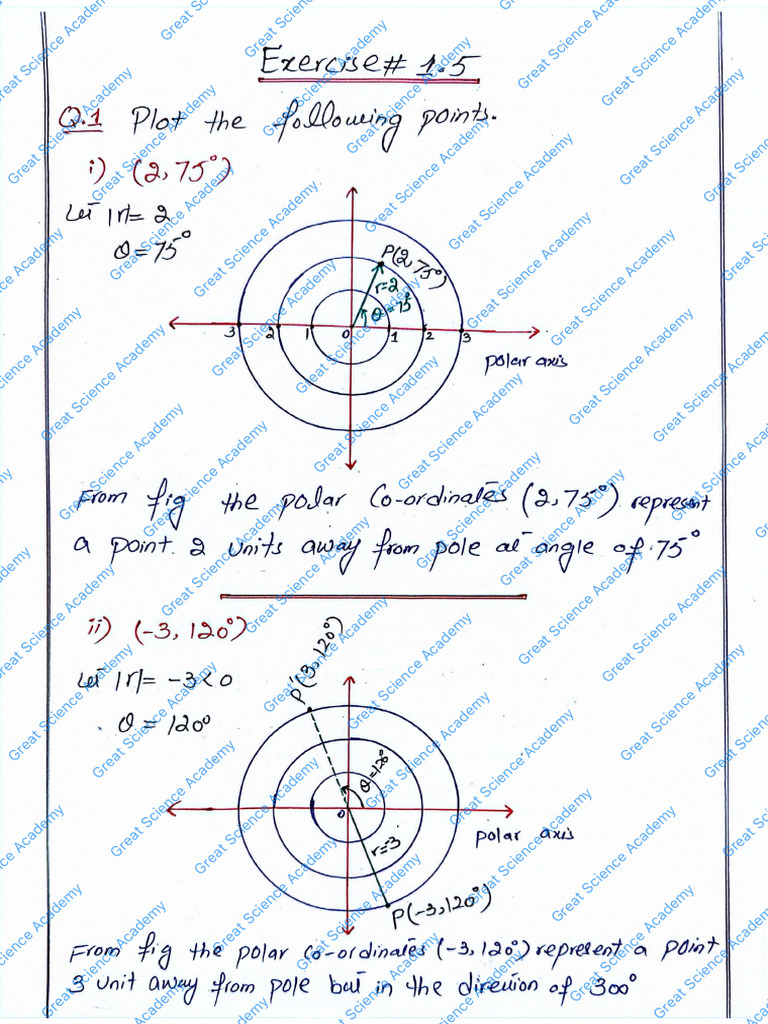 Exercise# 1.5
Q.1 Plot the following points.
i) (2, 75°)
Let |r|= 2
θ = 75°
P(2, 75°)
r=2
θ = 75°
3 2 1 0 1 2 3
polar axis
From fig the polar Co-ordinates (2, 75°) represent
a point 2 units away from pole at angle of 75°
ii) (-3, 120°)
Let |r|= -3 < 0
θ = 120°
P'(3, 120°)
θ=120°
0
r=3
polar axis
P(-3, 120°)
From fig the polar Co-ordinates (-3, 120°) represent a point
3 unit away from pole but in the direction of 300°
Great Science Academy